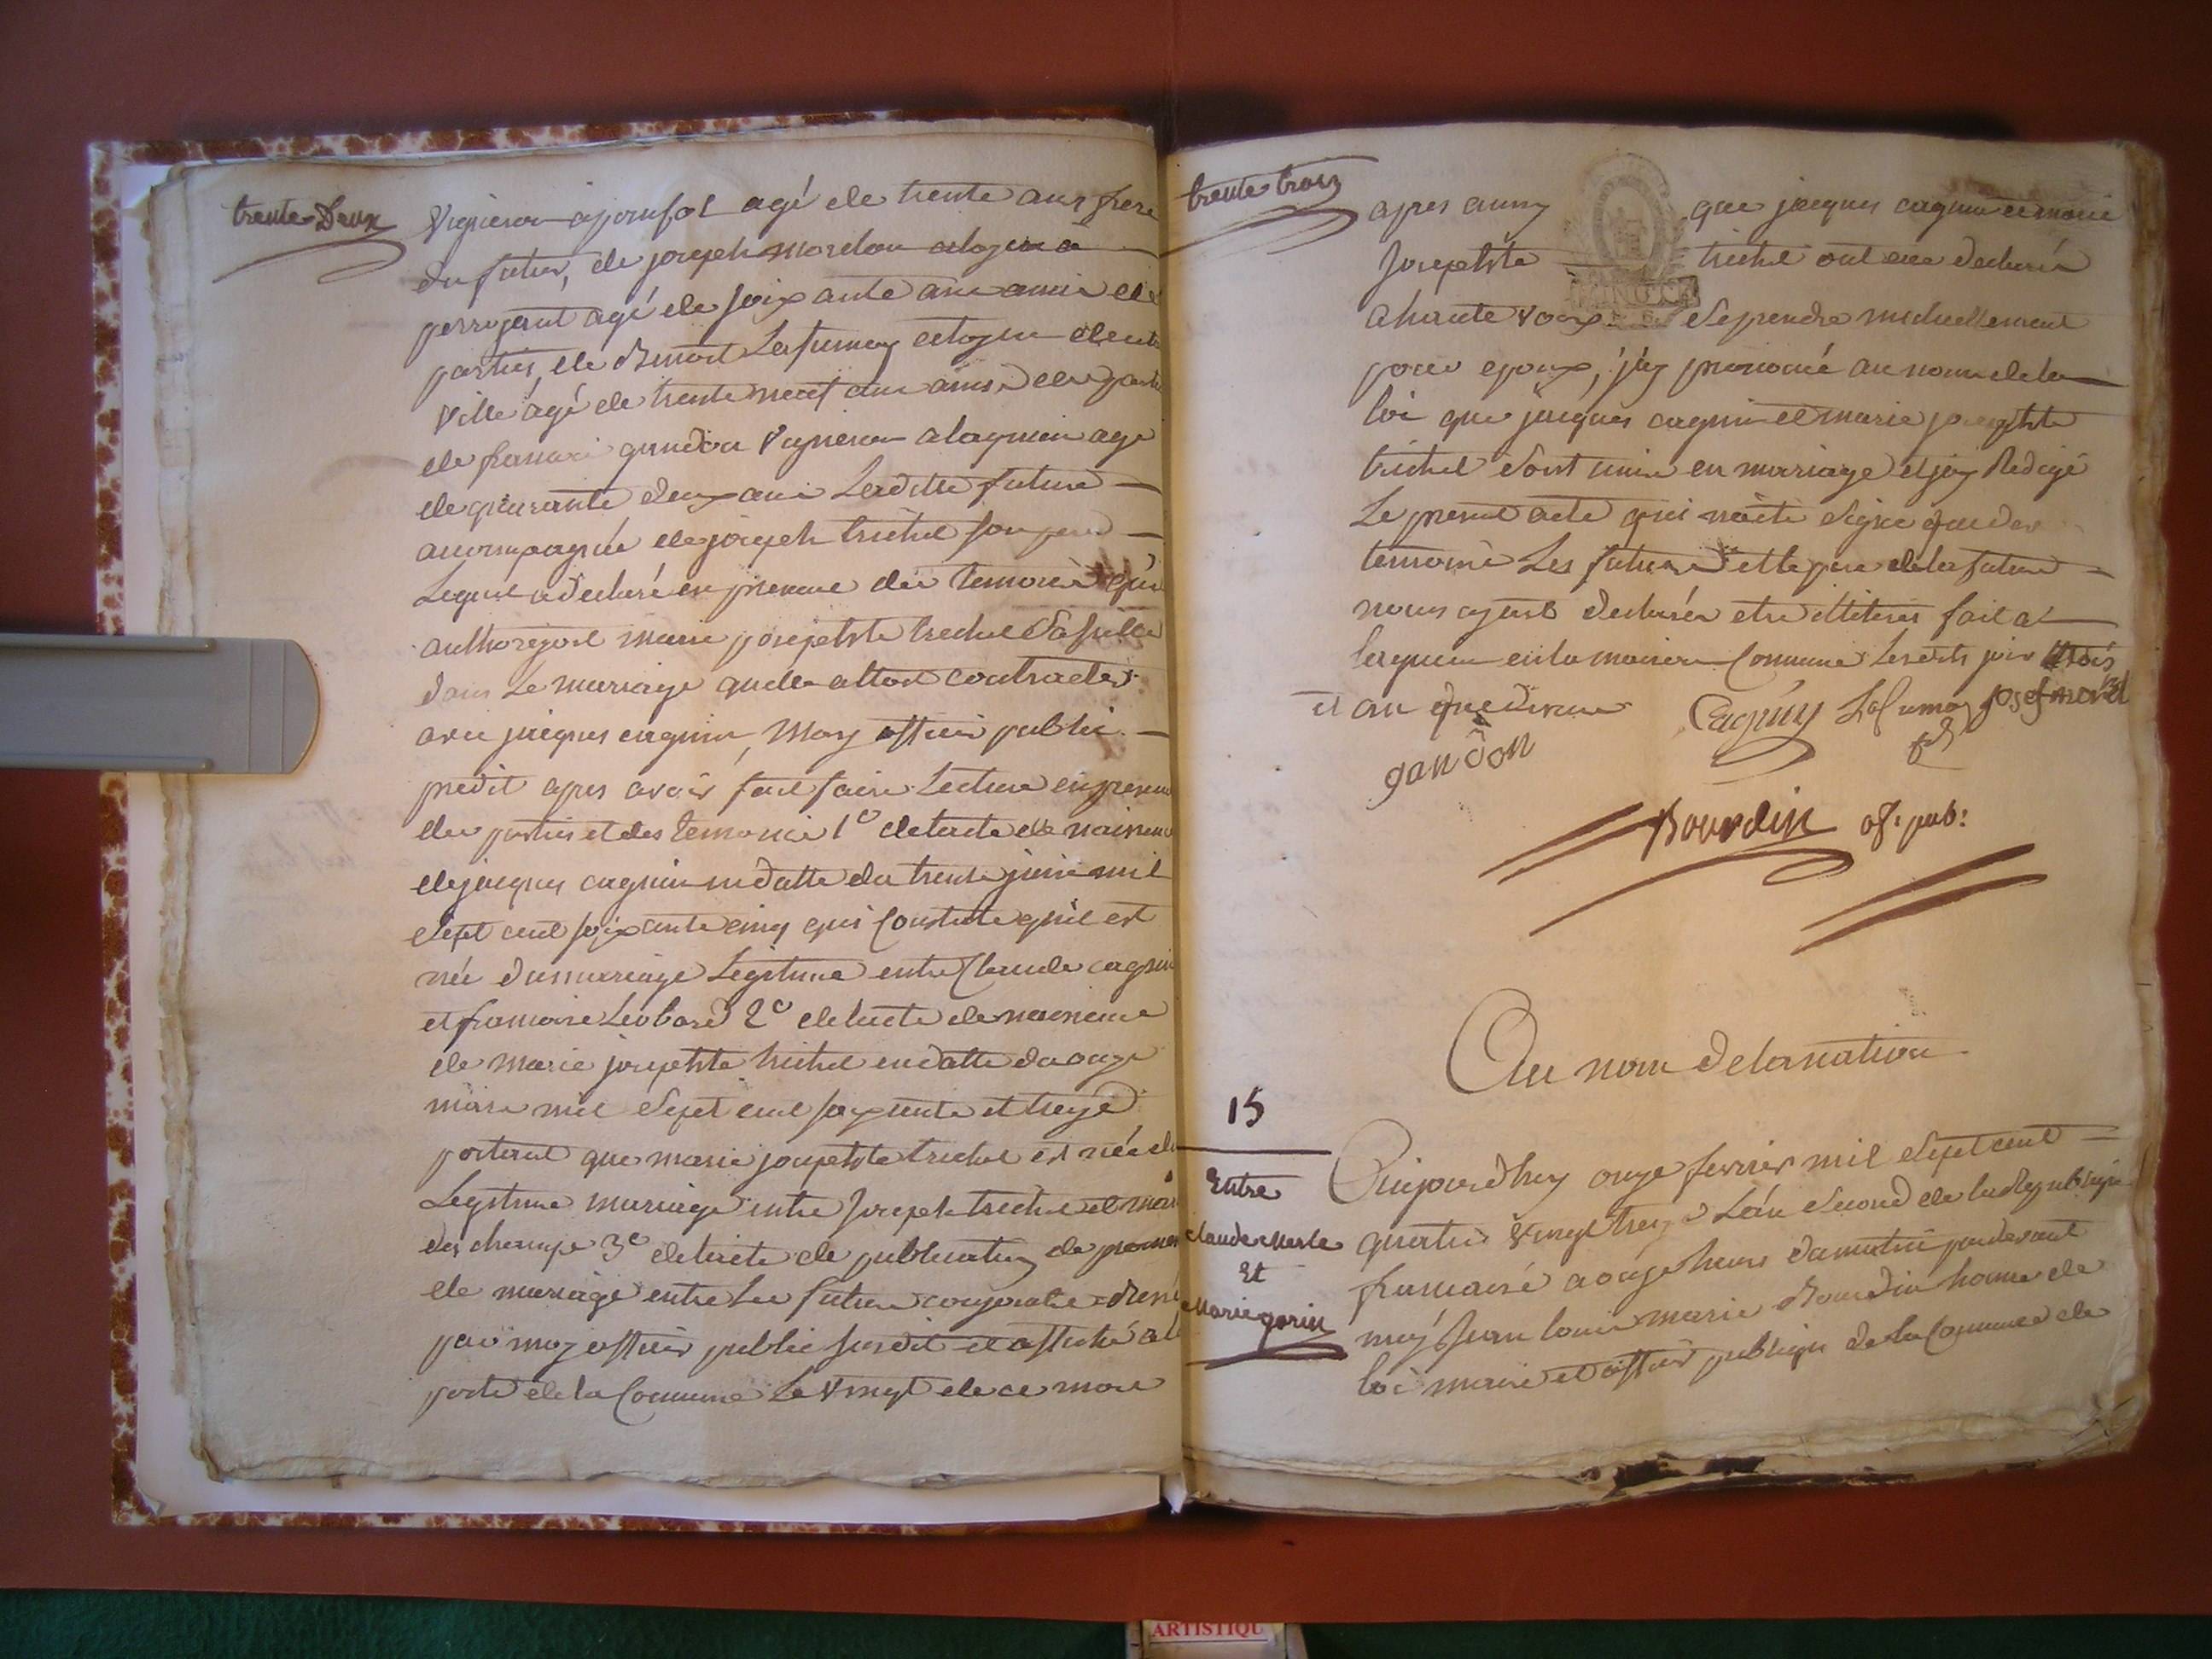 trente Deux
Vigneron a agé de trente ans frere
du futur, de joseph mordon citoyen a
agé de soixante ans amis des
parties, de Benoit Lafumay citoyen de cette
ville agé de trente neuf ans amis des parties
de françois gandon vigneron a lagnieu agé
de quarante deux ans Laditte future
accompagnée de joseph trichet son pere
Lequel a declaré en presence des temoins qu'il
authorizoit marie josephte trichet Sa fille
dans Le mariage qu'elle alloit contracter
avec jacques cagnin, Moy officier public
predit apres avoir fait faire Lecture en presence
des parties et des temoins 1º de l'acte de naissance
de jacques cagnin en datte du trente juin mil
Sept cent soixante cinq qui Constate qu'il est
née du mariage Legitime entre Claude cagnin
et françoise Leobard 2º de l'acte de naissance
de marie josephte trichet en datte du onze
mars mil Sept cent soixante et treize
portant que marie josephte trichet est née du
Legitime mariage entre joseph trichet et marie
des champs 3º de l'acte de publication de promesse
de mariage entre Les futurs conjoints dressé
par moy officier public susdit et affiché a la
porte de la Commune Le vingt de ce mois
trente trois
apres aussy que jacques cagnin et marie
Josephte trichet ont eue declarés
a haute voix Se prendre mutuellement
pour epoux, j'ay prononcé au nom de la
loi que jacques cagnin et marie josephte
trichet Sont unis en mariage et j'ay Redigé
Le present acte qui n'a été Signé que des
temoins Les futurs et le pere de la future
nous ayant declarés etre illiterés fait a
lagnieu en la maison Commune Lesdits jour mois
et an que dessus Cagniy Lafumay josef mordel
gandon
Bourdin of. pub:
Au nom de la nation
15
Entre
Claude Merle
Et
Marie gorin
Aujourdhuy onze fevrier mil Sept cent
quatre vingt treize L'an Second de la Republique
francaise a onze heures du matin pardevant
moy Jean louis marie Bourdin homme de
loi maire et officier publique de la Commune de
ARTISTIQU